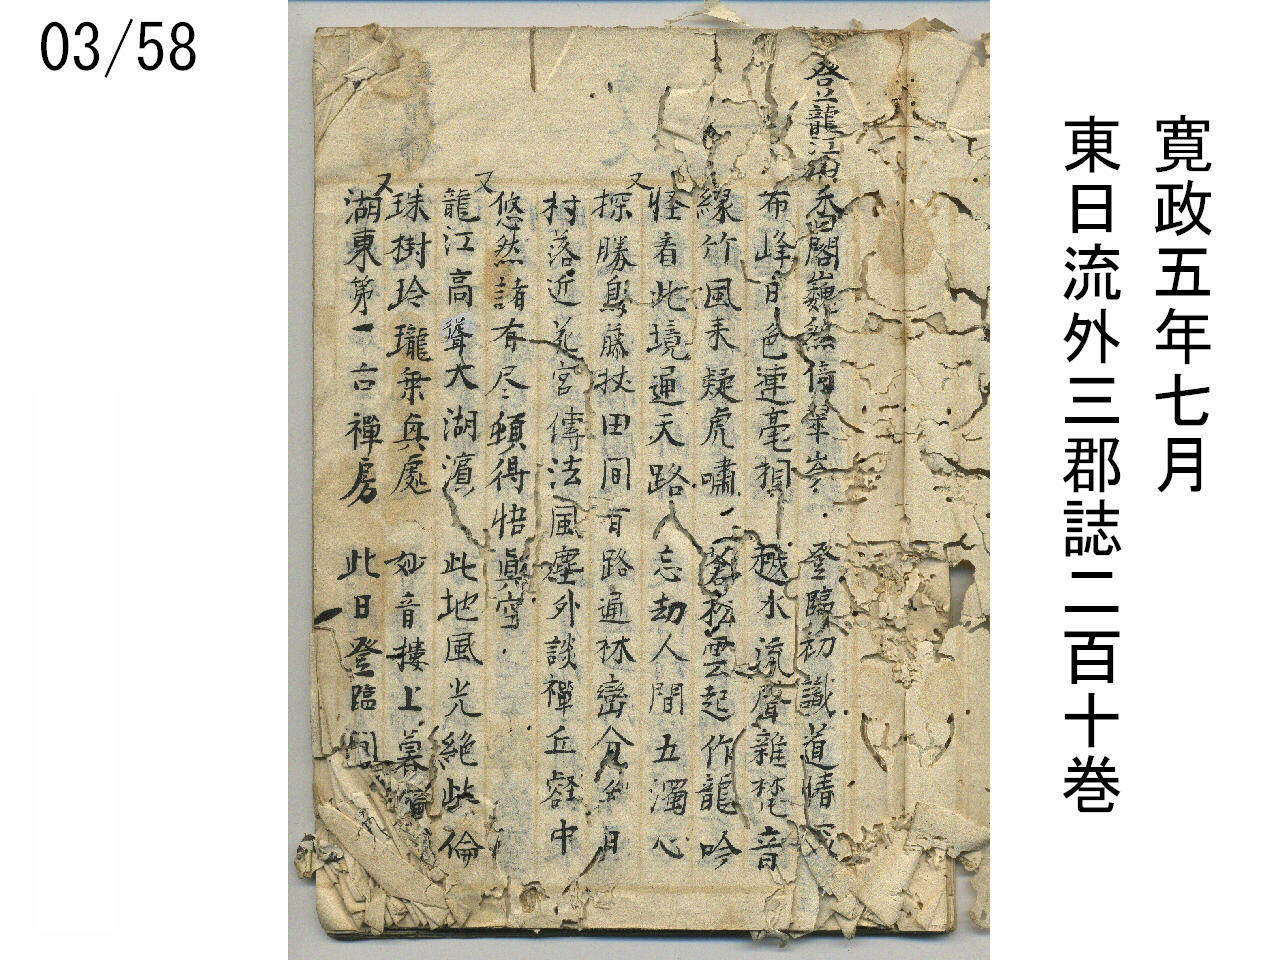 03/58
寛政五年七月
東日流外三郡誌二百十巻
登龍江
香閣巍然倚翠岑 登臨初識道情
布峰日色連毫 越水流聲雜梵音
緑竹風来疑虎嘯 蒼松雲起作龍吟
怪看此境通天路 忘劫人間五濁心
又
探勝烏藤扙田間百路通林巒分 月
村落近花宮傳法風塵外談禪丘壑中
悠然諸有尽頓得悟眞空
又
龍江高聳大湖濱 此地風光絶 倫
珠樹玲瓏乗興處 妙音樓上暮
又
湖東第一古禪房 此日登臨